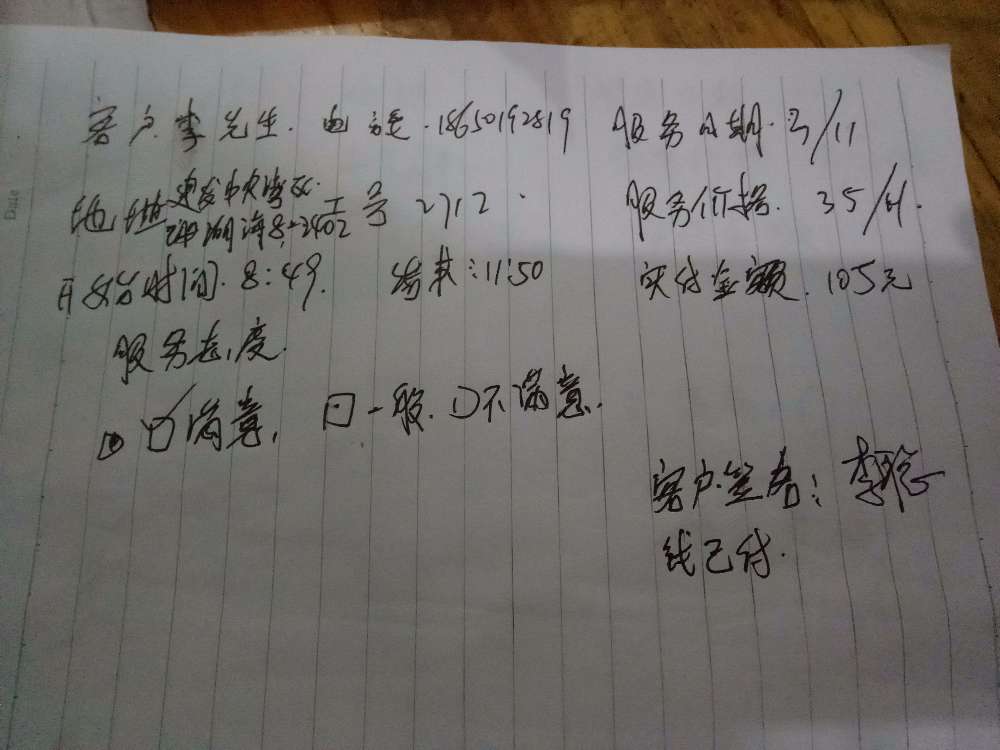 客户.李先生. 电话.18650192819 服务日期.3/11
地址 建发中央湾区
珊瑚海8-2402 工号 2712. 服务价格. 35/小.
开始时间.8:49. 结束:11:50 实付金额.105元
服务态度.
满意, 口一般.口不满意.
客户签名:李
钱已付.